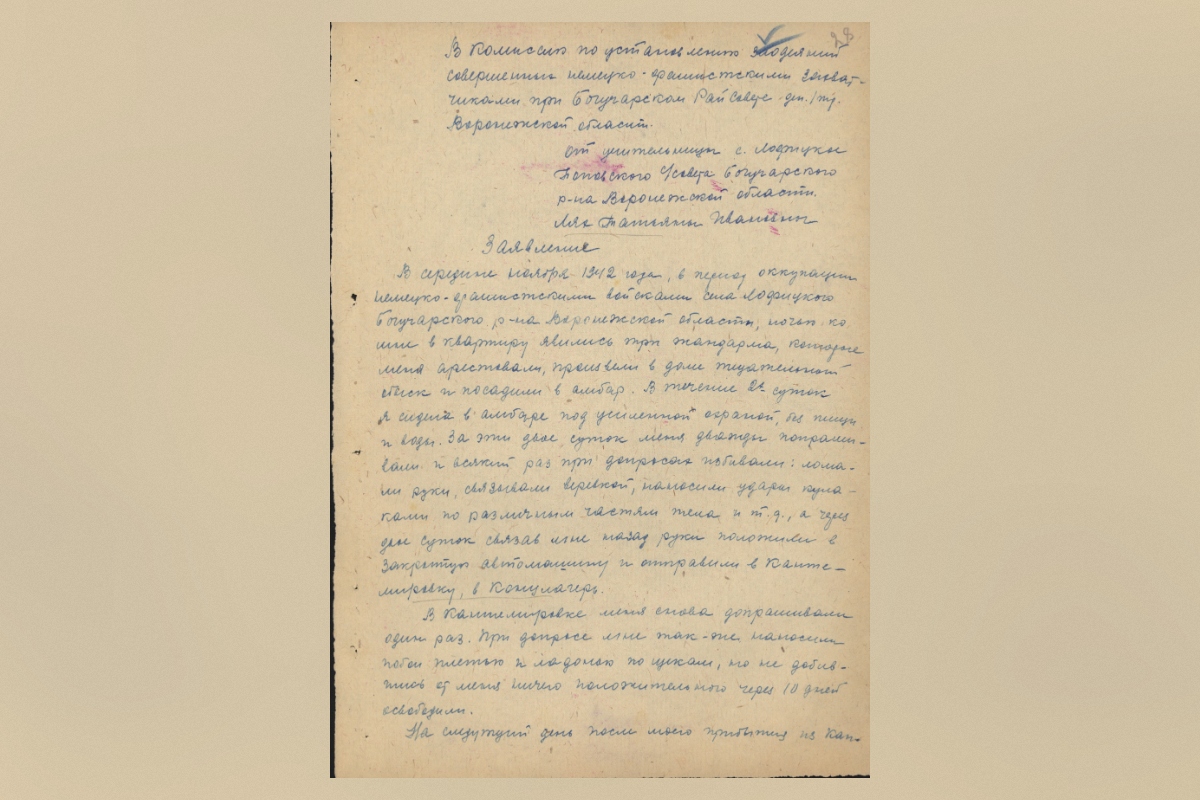 28
В Комиссию по установлению злодеяний
совершенных немецко-фашистскими захват-
чиками при Богучарском Райсовете деп./тр.
Воронежской области.
от учительницы с. Лофицкое
Поповского с/совета Богучарского
р-на Воронежской области.
Татьяны Ивановны
Заявление
В середине ноября 1942 года, в период оккупации
немецко-фашистскими войсками села Лофицкого
Богучарского р-на Воронежской области, ночью ко
мне в квартиру явились три жандарма, которые
меня арестовали, произвели в доме тщательный
обыск и посадили в амбар. В течение 2х суток
я сидела в амбаре под усиленной охраной, без пищи
и воды. За эти двое суток меня дважды
вали и всякий раз при допросах избивали: лома-
ли руки, связывали веревкой, наносили удары кула-
ками по различным частям тела и т.д., а через
двое суток связав мне назад руки положили в
закрытую автомашину и отправили в Канте-
мировку, в Концлагерь.
В Кантемировке меня снова допрашивали
один раз. При допросе мне так-же наносили
побои плетью и ладонью по щекам, но не добив-
шись от меня ничего положительного через 10 дней
освободили.
На следующий день после моего прибытия из Кан-